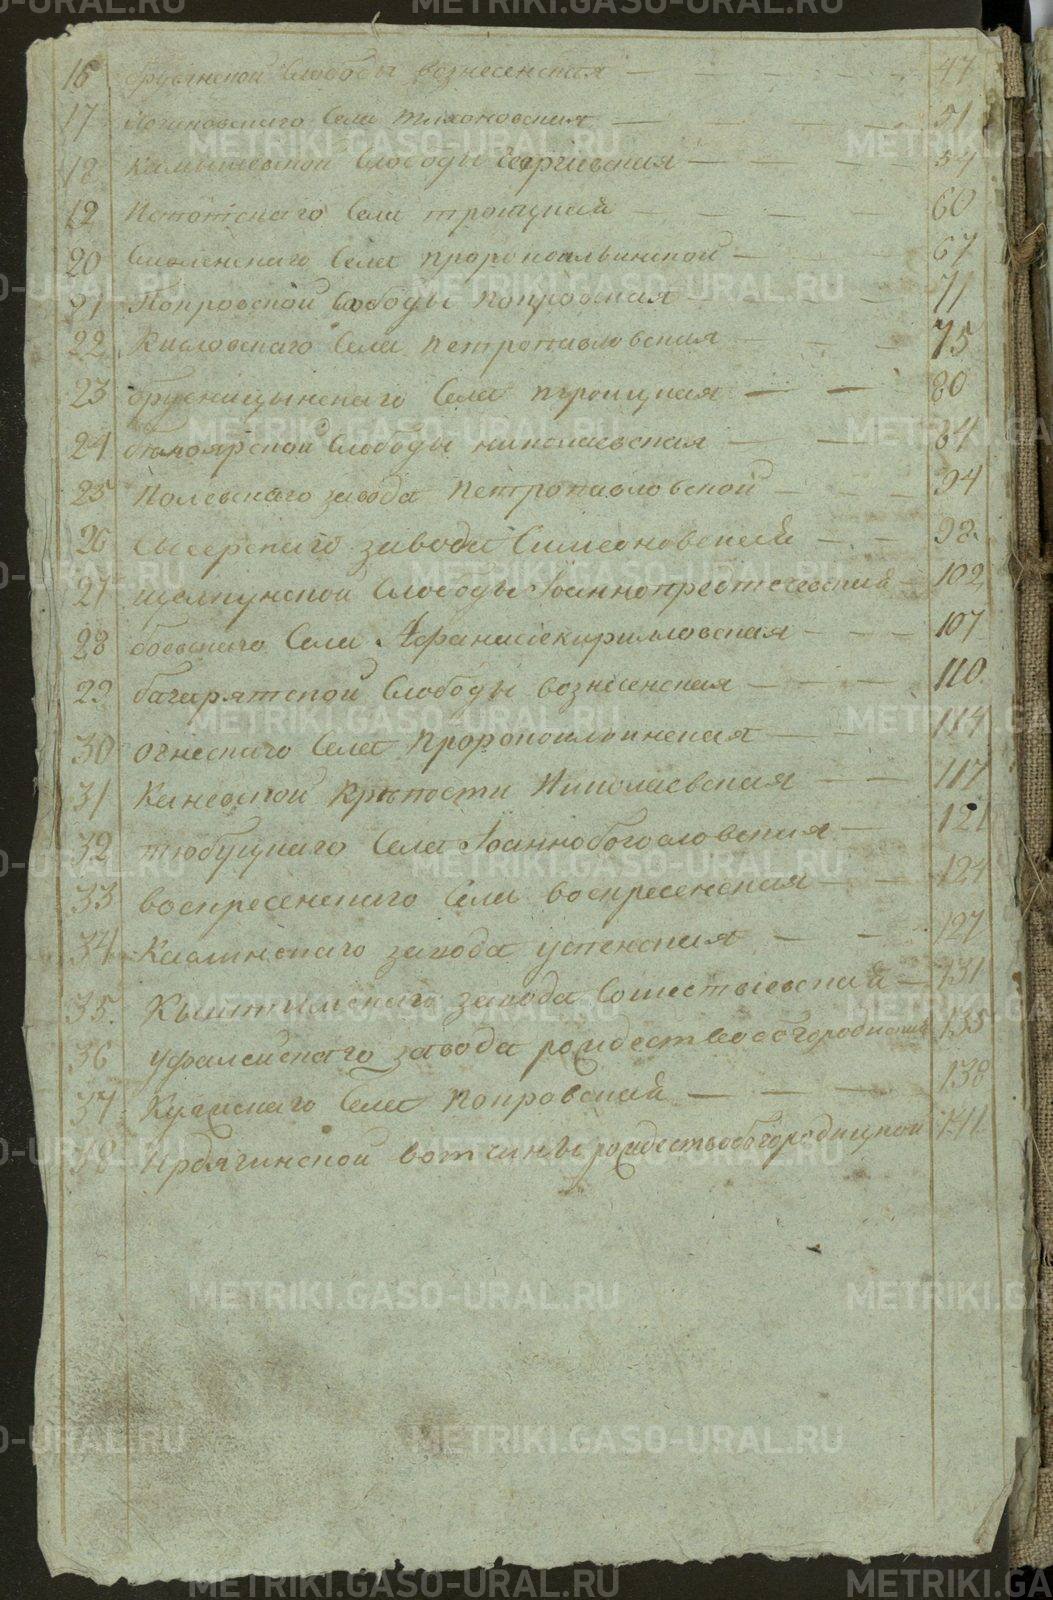 METRIKI.GASO-URAL.RU
16 Арамильской Слободы вознесенская — 47
17 Логиновскаго Села тихоновская — 51
18 Камышевской Слободы Георгіевская — 54
19 Истотскаго Села троицкая — 60
20 Смоленскаго Села пророкоильинской — 67
21 Покровской Слободы покровская — 71
22 Кисловскаго Села петропавловская — 75
23 брусницынскаго Села троицкая — 80
24 белоярской Слободы николаевская — 84
25 Полевскаго завода Петропавловской — 94
26 Сысерскаго завода Симеоновской — 98
27 щелкунской Слободы Іоаннопредтечевской — 102
28 боевскаго Села Афанасіекирилловская — 107
29 багарятской Слободы вознесенская — 110
30 огнескаго Села Пророкоильинская — 114
31 Каневской Крѣпости Николаевская — 117
32 тюбуцкаго Села Іоаннобогословская — 121
33 воскресенскаго Села воскресенская — 124
34 Каслинскаго завода успенская — 127
35 Кыштимскаго завода Сошествіевской — 131
36 Уфалейскаго завода рождествобогородицкая 135
37 Куяшскаго Села Покровской — 138
38 Ирдягинской вотчины рождествобогородицкой 141